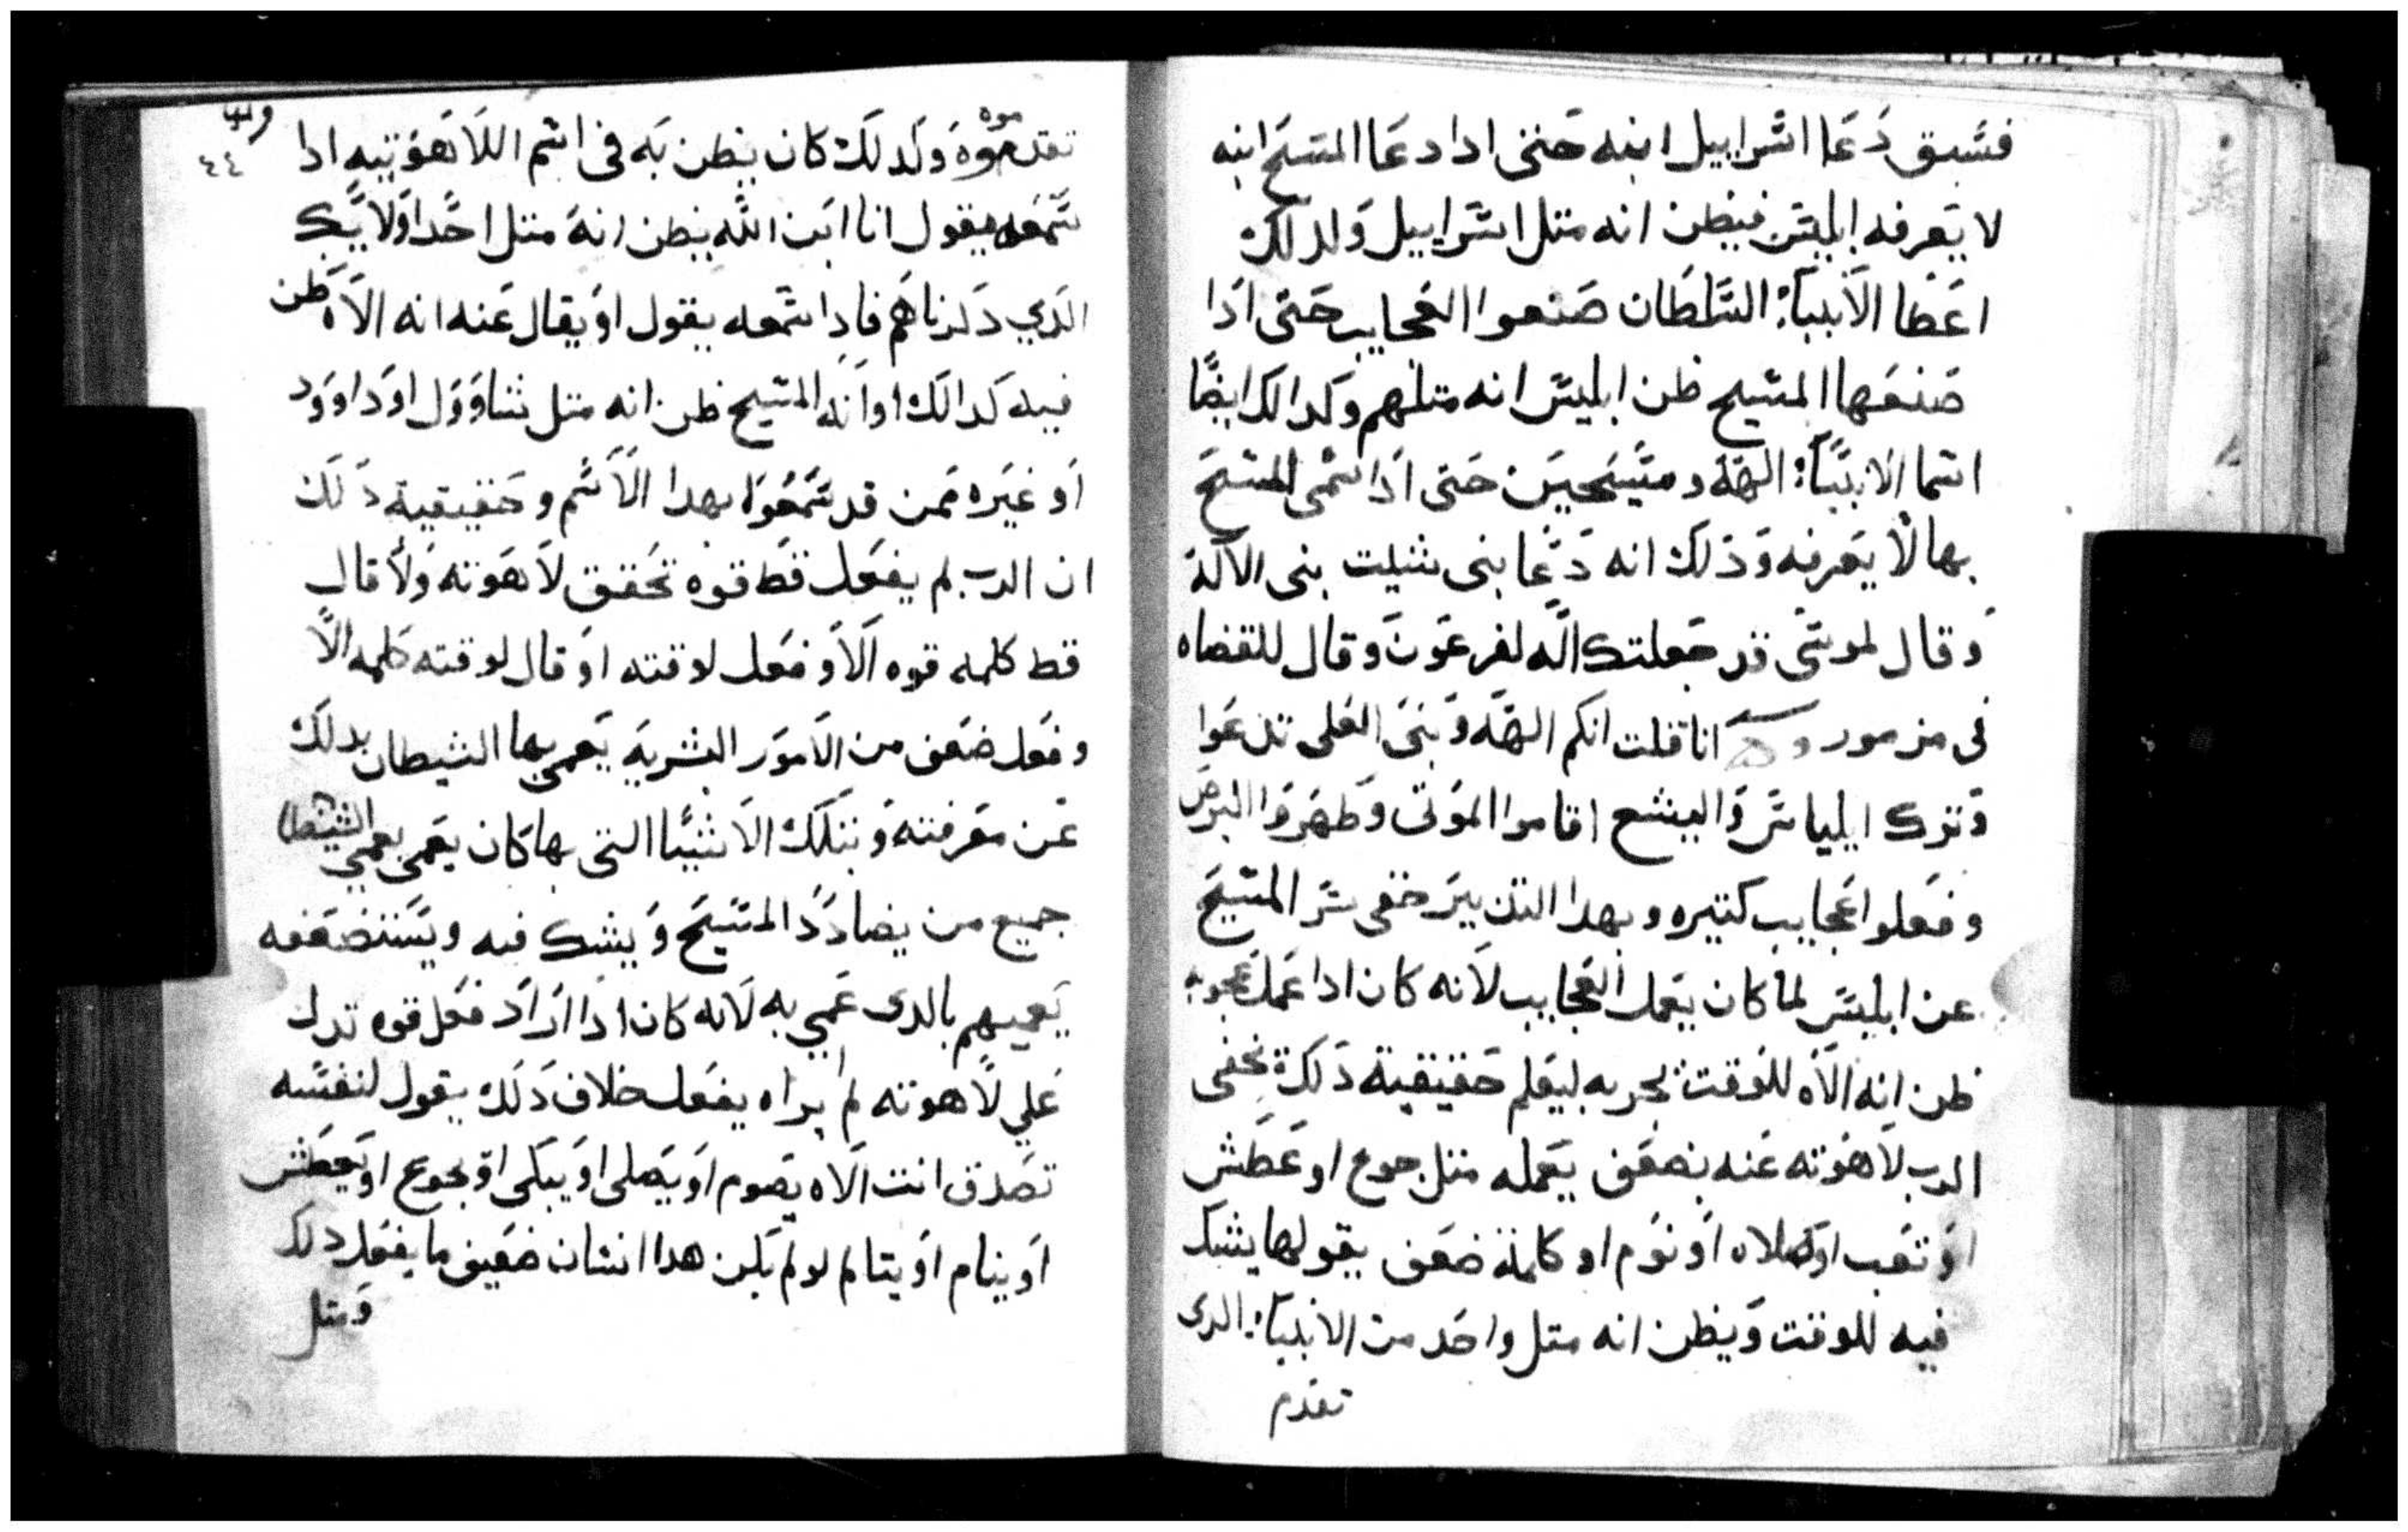 فسبق دعا اسراييل ابنه حتى ادا دعا المسيح ابنه
لا يعرفه ابليس فيظن انه متل اسراييل ولدلك
اعطا الانبياء السلطان صنعوا العجايب حتى ادا
صنعها المسيح ظن ابليس انه متلهم وكدالك ايضًا
اسما الانبياء الهة ومسيحيين حتى ادا سمى المسيح
بها لا يعرفه ودلك انه دعا بنى شيت بنى الالاة
وقال لموسى قد جعلتك الَّه لفرعون وقال للقضاه
فى مزمور انا قلت انكم الهة وبنى العلى تدعوا
وترك ايلياس واليشع اقاموا الموتى وطهروا البرص
وفعلوا عجايب كتيره وبهدا التدبير خفى سر المسيح
عن ابليس لما كان يعمل العجايب لانه كان ادا عمل عجوبه
ظن انه الاه للوقت يجربه ليعلم حقيقية دلك يخفى
الرب لاهوته عنه بضعف يعمله متل جوع او عطش
او تعب او صلاه او نوم او كلمة ضعف يقولها يشك
فيه للوقت ويظن انه متل واحد من الانبياء الدى
تقدم
٤٤
تقدموه ولدلك كان يظن به فى اسم اللاهوتيه ادا
سمعه يقول انا ابن الله يظن انه متل احدا ولايك
الدي دكرناهم فادا سمعه يقول او يقال عنه انه الاه ظن
فيه كدالك او انه المسيح ظن انه متل شاوول او داوود
او غيره ممن قد سمعوا بهدا الاسم وحقيقية دلك
ان الرب لم يفعل قط قوه تحقق لاهوته ولا قال
قط كلمه قوه الا وفعل لوقته او قال لوقته كلمه الا
وفعل ضعف من الامور البشريه يعمي بها الشيطان بدلك
عن معرفته وبتلك الاشيا التى بها كان يعمى يعمي الشيطان
جميع من يضادد المسيح ويشك فيه ويستضعفه
يعميهم بالدى عمي به لانه كان ادا اراد فعل قوه تدل
علي لاهوته لم يراه يفعل خلاف دلك يقول لنفسه
تصدق انت الاه يصوم او يصلى او يبكى او يجوع او يعطش
او ينام او يتالم لو لم يكن هدا انسان ضعيف ما يفعل دلك
ومتل